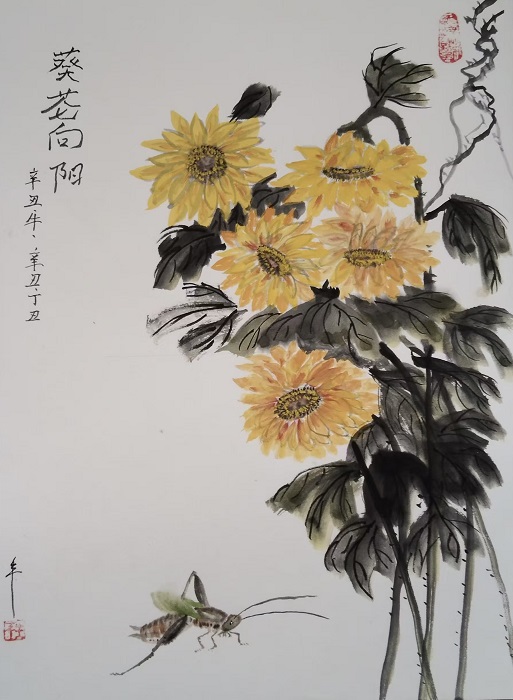 葵花向阳
辛丑牛、辛丑、丁丑